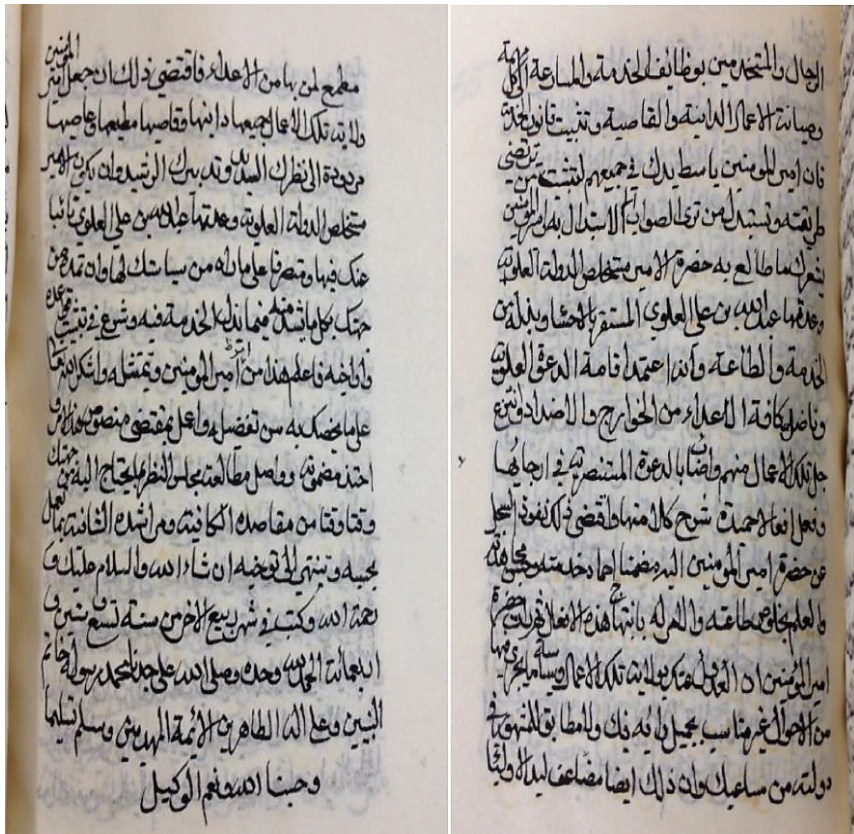 الرجال والمستخدمين بوظائف الخدمة والمسارعة الى كل مهمة
وصيانة الاعمال الدانية والقاصية وتثبيت قانون الخدمة
فان امير المومنين باسط يدك في جميعهم لتثبت من ترتضى
طريقته وتستبدل من ترى الصواب الاستبدال به وامير المومنين
يشعرك ما طالع به حضرة الامير متخلص الدولة العلوية
وعدتها عبد الله بن علي العلوي المستقر بالاحساء وبذله من
الخدمة والطاعة وانه اعتمد اقامة الدعوة العلوية
وناضل كافة الاعداء من الخوارج والاضداد وانتزع
جل تلك الاعمال منهم واصاب بالدعوة المستنصرية في ارجائها
وفعل افعالا حميدة شرح كلا منها واقتضى ذلك نفوذ السجل
عن حضرة امير المومنين اليه مضمنا احماد خدمته
والعلم بخلوص طاعته بانتهاج هذه الافعال حضرة
امير المؤمنين ان بولاية تلك الاعمال وسائر ما يجرى مجراها
من الاحوال غير مناسب بجميل رائه فيك ولا مطابق للمشهور في
دولته من مساعيك وان ذلك ايضا مضاعف ليد الاولياء
مطمع لمن بها من الاعداء فاقتضى ذلك ان جعل امير المومنين
ولاية تلك الاعمال جميعها دانيها وقاصيها مطيعها وعاصيها
مردودة الى نظرك السديد وتدبيرك الرشيد وان يكون الامير
متخلص الدولة العلوية وعدتها عبد الله بن علي العلوي نائبا
عنك فيها ومتصرفا على ما تراه من سياستك لها وان تمده من
جهتك بكل ما يشد منه فيما بذله الخدمة فيه وشرع في تثبيت قواعده
واواخيه فاعلم هذا من امير المومنين وتمتثله واشكر الله تعالى
على ما يخصك به من تفضيله واعمل بمقتضى منصوص هذا الامر و
احتذ مضمونه وواصل مطالعة مجلس النظر بما يحتاج اليه من جهتك
وقتا وقتا من مقاصده الكافية ومراشده الشافية بما تعمل
بحسبه وتنتهي الى توخيه ان شاء الله والسلام عليك و
رحمة الله وكتب في شهر ربيع الاخر من سنة تسع وستين و
اربعمائة الحمد لله وحده وصلى الله على جدنا محمد رسوله خاتم
النبيين وعلى اله الطاهرين الائمة المهديين وسلم تسليما
وحسبنا الله ونعم الوكيل